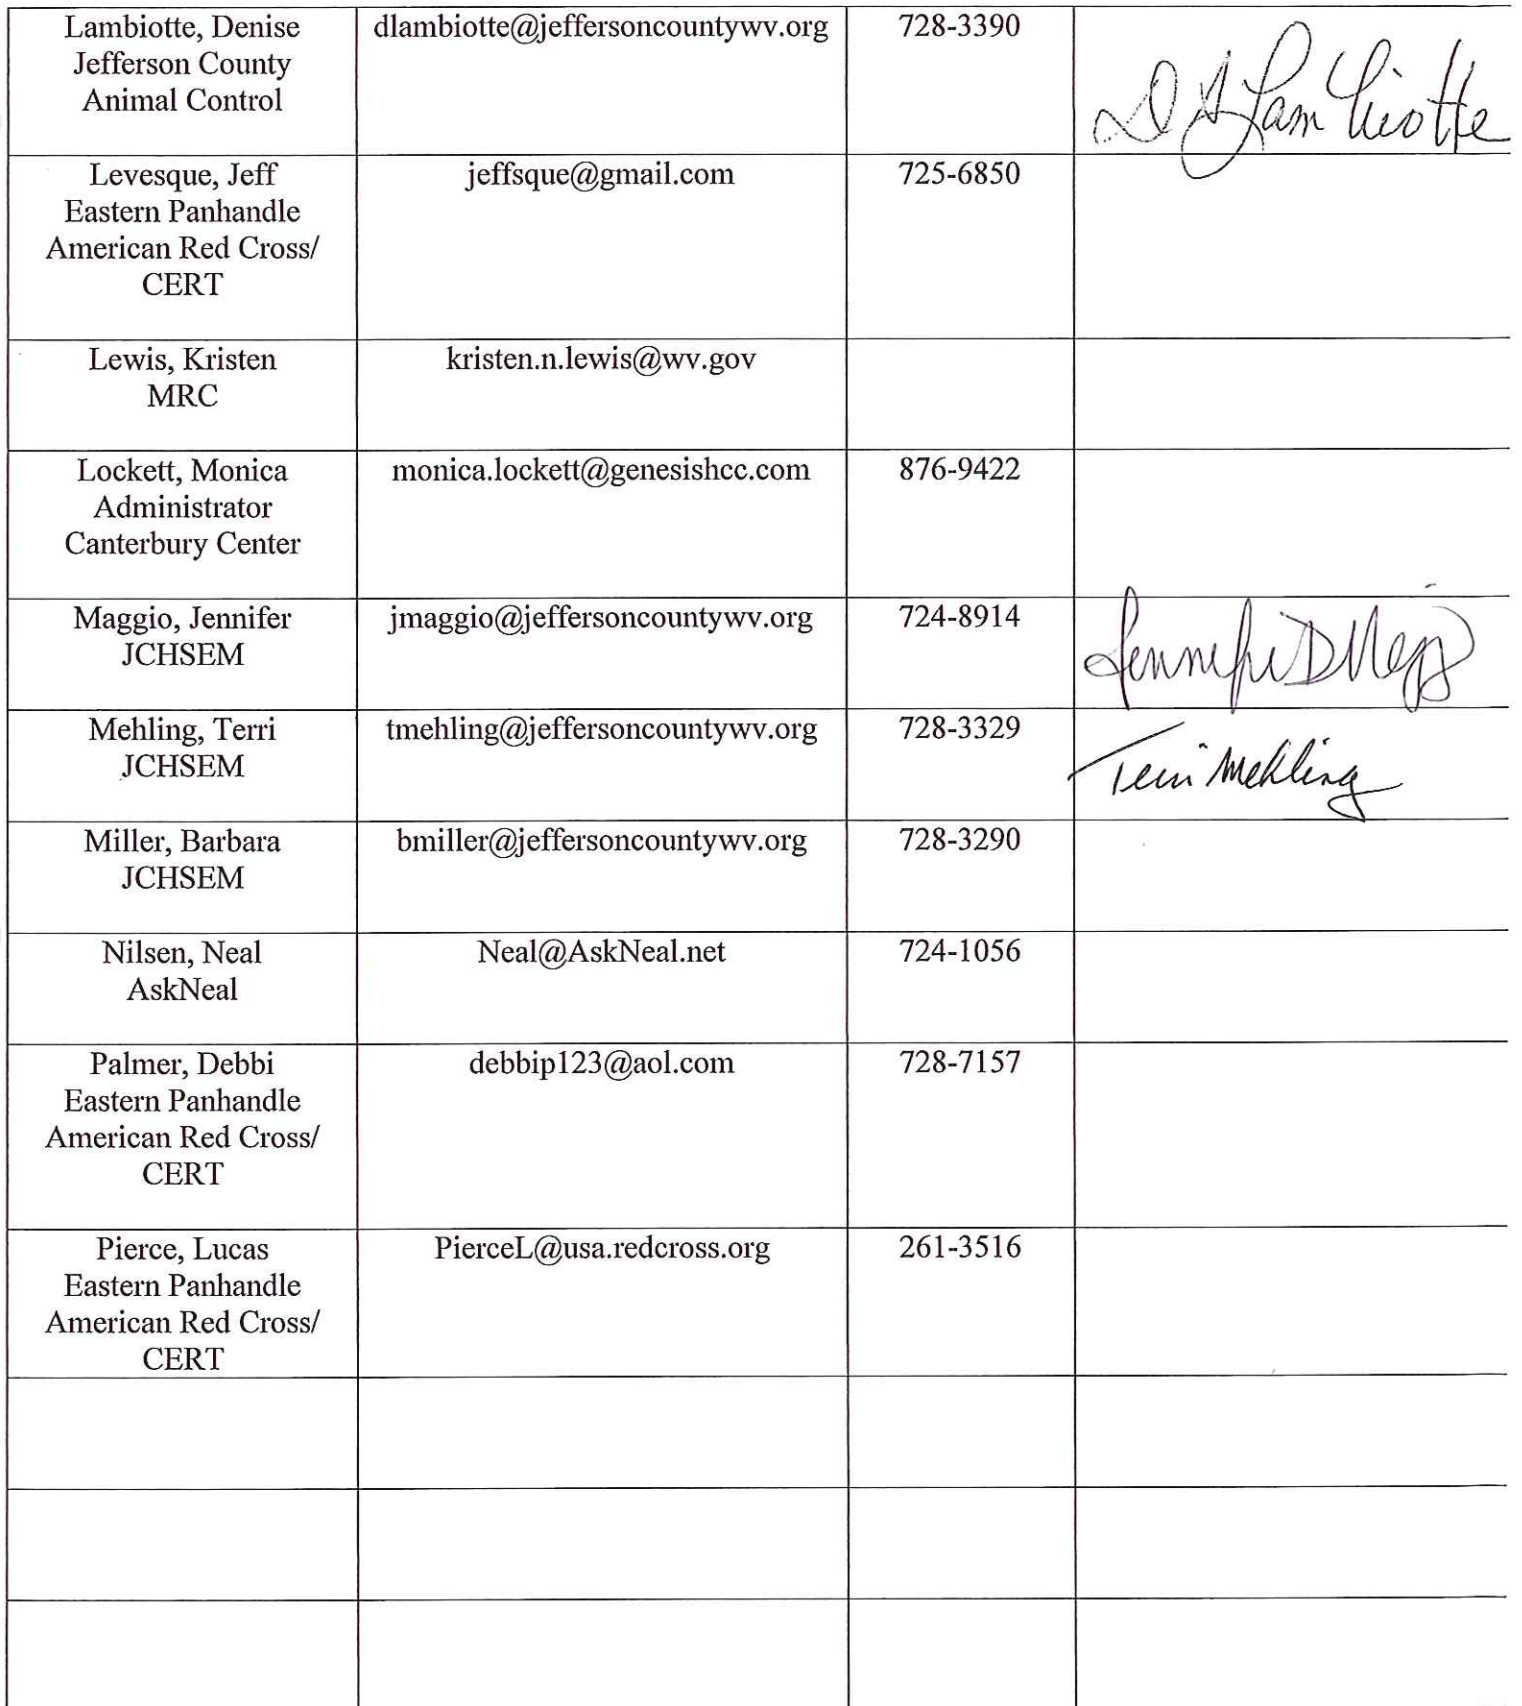 Lambiotte, Denise
Jefferson County
Animal Control
dlambiotte@jeffersoncountywv.org
728-3390
D A Lambiotte
Levesque, Jeff
Eastern Panhandle
American Red Cross/
CERT
jeffsque@gmail.com
725-6850
Lewis, Kristen
MRC
kristen.n.lewis@wv.gov
Lockett, Monica
Administrator
Canterbury Center
monica.lockett@genesishcc.com
876-9422
Maggio, Jennifer
JCHSEM
jmaggio@jeffersoncountywv.org
724-8914
Jennifer D
Mehling, Terri
JCHSEM
tmehling@jeffersoncountywv.org
728-3329
Terri Mehling
Miller, Barbara
JCHSEM
bmiller@jeffersoncountywv.org
728-3290
Nilsen, Neal
AskNeal
Neal@AskNeal.net
724-1056
Palmer, Debbi
Eastern Panhandle
American Red Cross/
CERT
debbip123@aol.com
728-7157
Pierce, Lucas
Eastern Panhandle
American Red Cross/
CERT
PierceL@usa.redcross.org
261-3516